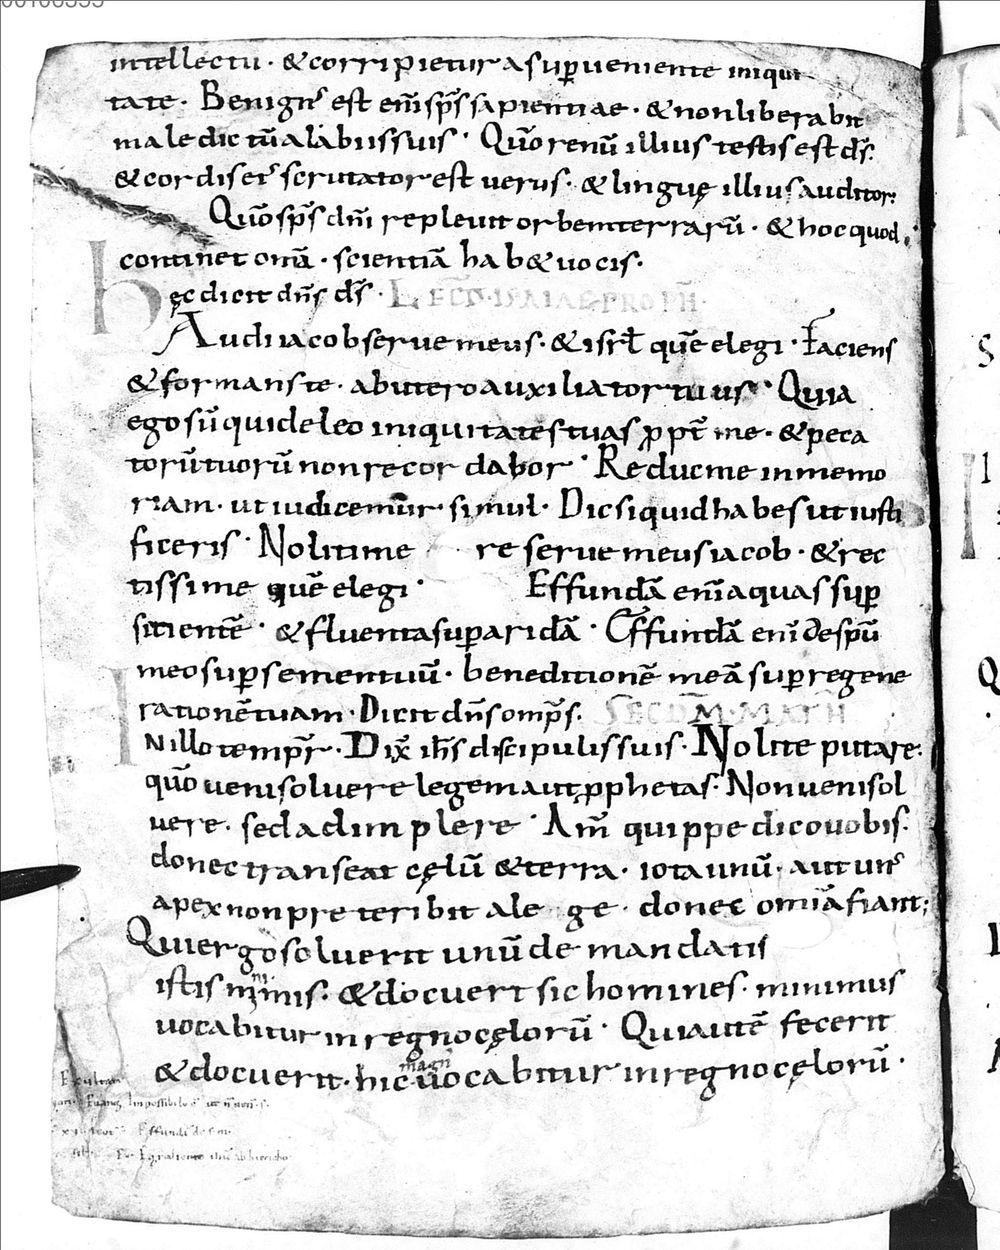 intellectu · & corripietur a sup̄ueniente iniqui
tate · Benign᾿ est em̄ sp̄s sapientiae · & non liberabit
maledictū a labiis suis · Quō renū illius testis est d̄s·
& cordis ei᾿ scrutator est uerus · & linguę illius auditor·
Quō sp̄s dn̄i repleuit orbem terrarū · & hoc quod
continet om̄a · scientiā hab& uocis·
Hęc dicit dn̄s d̄s · LEC̄T̄O · ISAIAE · PROPH̄·
Audi iacob serue meus · & isrł quē elegi · Faciens
& formans te · ab utero auxiliator tuus · Quia
ego sū qui deleo iniquitates tuas ꝓpt̄ me · & peca
torū tuorū non recordabor · Reduc me in memo
riam · ut iudicemur simul · Dic si quid habes ut iusti
ficeris · Noli time re serue meus iacob · & rec
tissime quē elegi · Effundā em̄ aquas sup̄
sitientē · & fluenta sup̄ aridā · Effundā em̄ de sp̄u
meo sup̄ semen tuū · beneditionē meā sup̄ regene
rationē tuam · Dicit dn̄s omp̄s · SECDM̄ · MATH̄
IN illo tempr̄ · Dix̄ ih̄s discipulis suis · Nolite putare·
quō ueni soluere legem aut ꝓphetas · Non ueni sol
uere · sed adimplere · Am̄ quippe dico uobis·
donec transeat cęlū & terra · iota unū · aut un᾿
apex non preteribit a le ge · donec omīa fiant;
Qui ergo soluerit unū de mandatis
istis minimis · & docuert sic homines · minimus
uocabitur in regno cęlorū · Qui autē fecerit
& docuerit · hic magn᾿ uocabitur in regno cęlorū ·